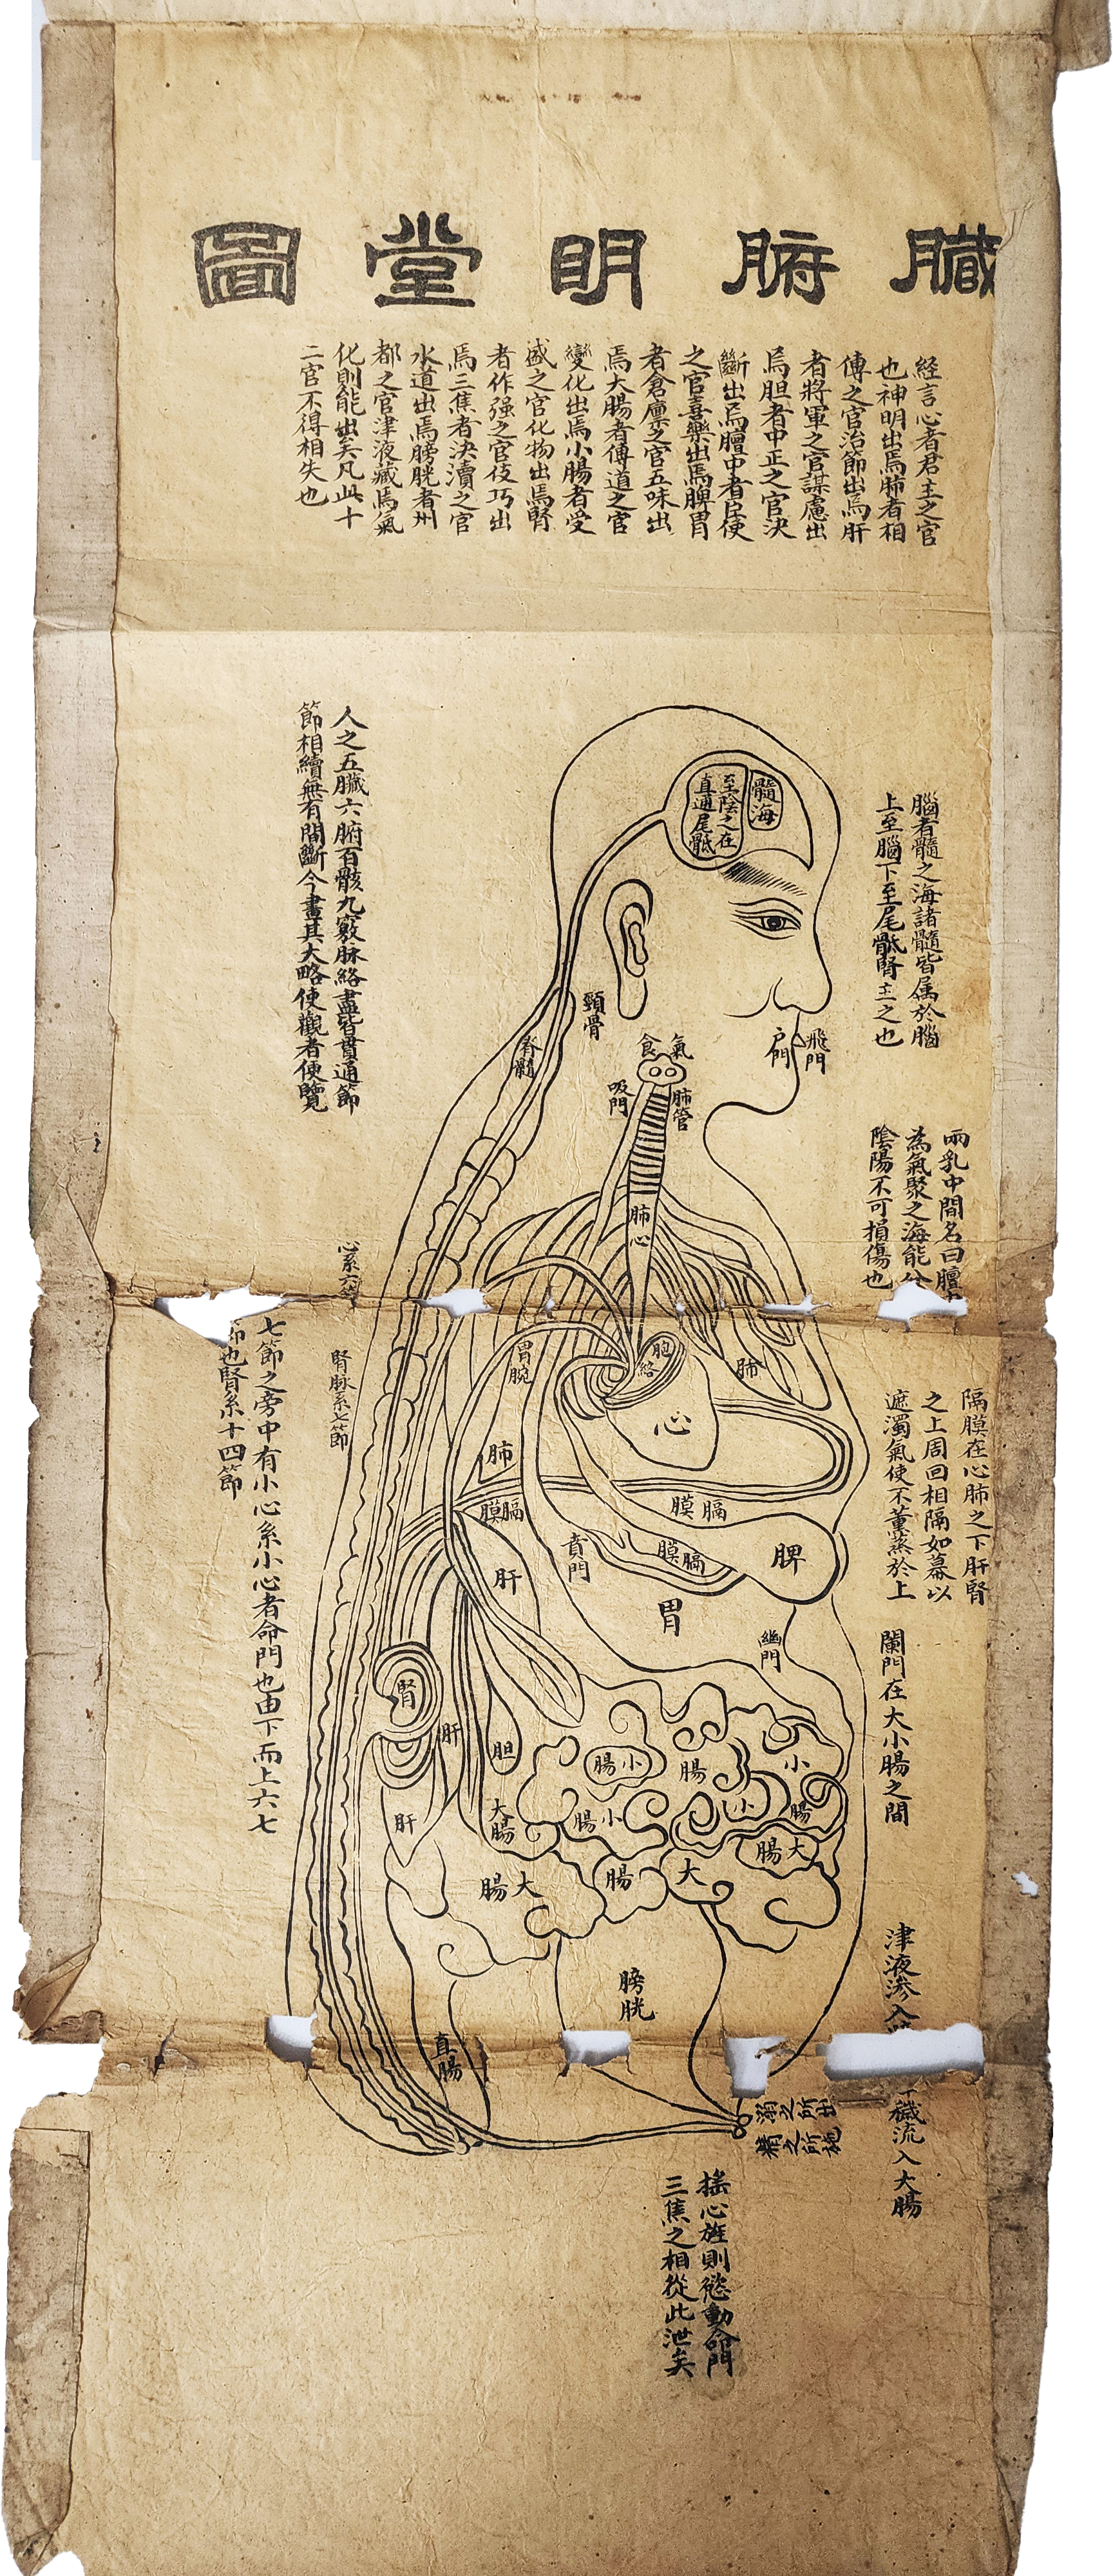 臟腑明堂圖
經言心者君主之官
也神明出焉肺者相
傅之官治節出焉肝
者將軍之官謀慮出
焉胆者中正之官決
斷出焉膻中者臣使
之官喜樂出焉脾胃
者倉廪之官五味出
焉大腸者傳道之官
變化出焉小腸者受
盛之官化物出焉腎
者作强之官伎巧出
焉三焦者決瀆之官
水道出焉膀胱者州
都之官津液藏焉氣
化則能出矣凡此十
二官不得相失也
腦者髓之海諸髓皆属於腦
上至腦下至尾骶腎主之也
髓海
至陰之在
直通尾骶
人之五臟六腑百骸九竅脉絡盡皆貫通節
節相續無有間斷今畫其大略使觀者便覽
飛門
户門
頸骨
脊髓
食
氣
吸門
肺管
肺
心
兩乳中間名曰膻
為氣聚之海能分
陰陽不可損傷也
心系六
腎脉系七節
七節之旁中有小心系小心者命門也由下而上六七
也腎系十四節
胃脘
胞絡
肺
心
肺
膈膜
膈膜
膈膜
賁門
脾
肝
胃
幽門
隔膜在心肺之下肝腎
之上周回相隔如幕以
遮濁氣使不薰蒸於上
闌門在大小腸之間
腎
肝
胆
肝
小腸
腸
小
小腸
小
腸
大腸
大腸
大腸
腸
大
膀胱
直腸
津液渗入
穢流入大腸
溺之所出
精之所施
搖心旌則慾動命門
三焦之相從此泄矣